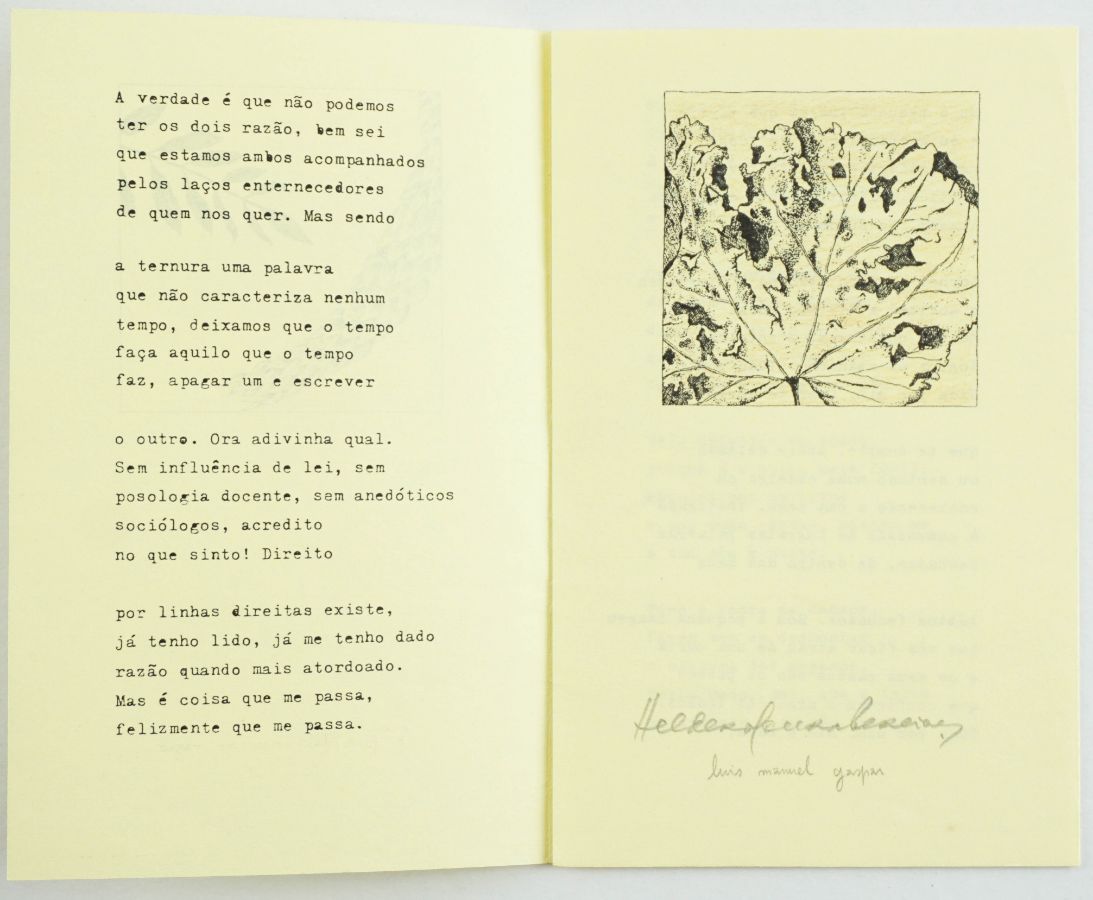 A verdade é que não podemos
ter os dois razão, bem sei
que estamos ambos acompanhados
pelos laços enternecedores
de quem nos quer. Mas sendo
a ternura uma palavra
que não caracteriza nenhum
tempo, deixamos que o tempo
faça aquilo que o tempo
faz, apagar um e escrever
o outro. Ora adivinha qual.
Sem influência de lei, sem
posologia docente, sem anedóticos
sociólogos, acredito
no que sinto! Direito
por linhas direitas existe,
já tenho lido, já me tenho dado
razão quando mais atordoado.
Mas é coisa que me passa,
felizmente que me passa.
Helder Moura Pereira
luis manuel gaspar